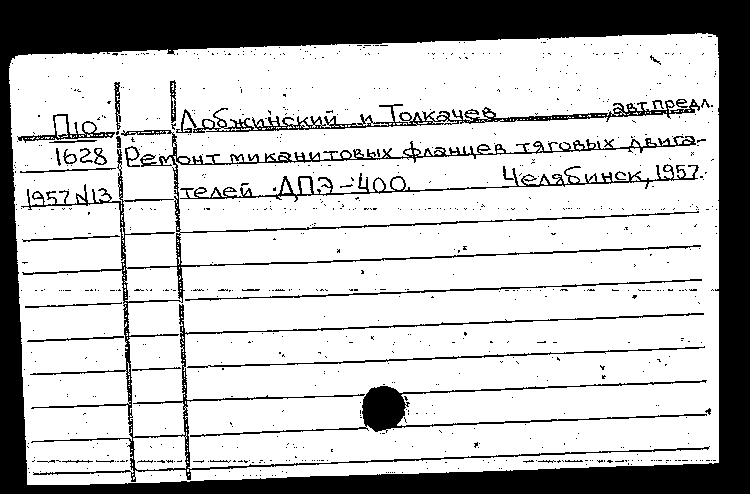 П10 Лобжинский и Толкачев, авт. предл.
1628 Ремонт миканитовых фланцев тяговых двига-
1957 N13 телей ДПЭ-400. Челябинск, 1957.